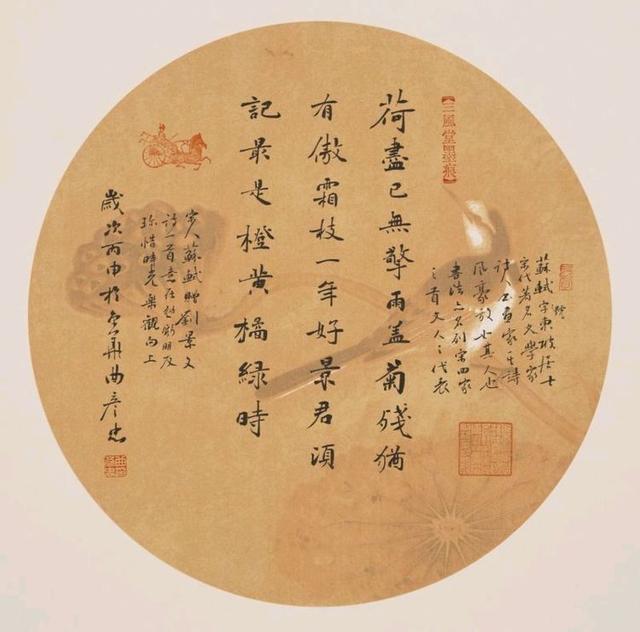 【三風堂墨痕】
蘇軾字東坡居士
號
宋代著名文學家
詩人書画家其詩
風豪放士其人也
書法名列宋四家
之首文人之代表
荷盡已無擎雨蓋菊殘猶
有傲霜枝一年好景君須
記最是橙黄橘緑時
宋人蘇軾贈劉景文
詩一首意在勉勵朋友
珍惜時光樂觀向上
歲次丙申於京華曲彦忠